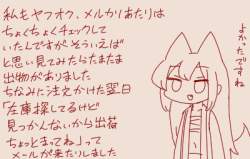 私もヤフオク、メルカリあたりは
ちょくちょくチェックして
いたんですが、そういえば
と思い見てみたらたまたま
出物がありました
ちなみに注文かけた翌日
「在庫探してるけど
見つかんないから出荷
ちょっとまってね」って
メールが来たりしました
よかったですね